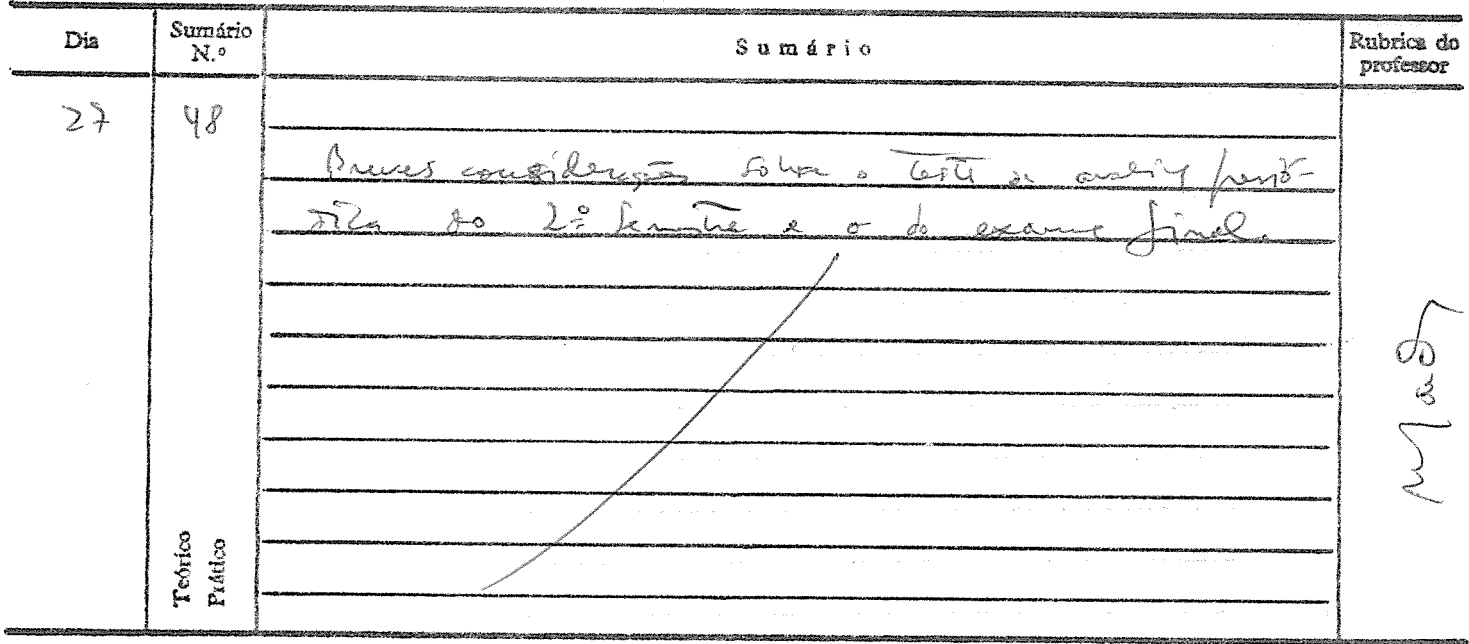 Dia
Sumário N.º
Sumário
Rubrica do professor
27
48
Breves considerações sobre o teste de avaliação perió-
dica do 2º Semestre e o do exame final.
Teórico
Prático